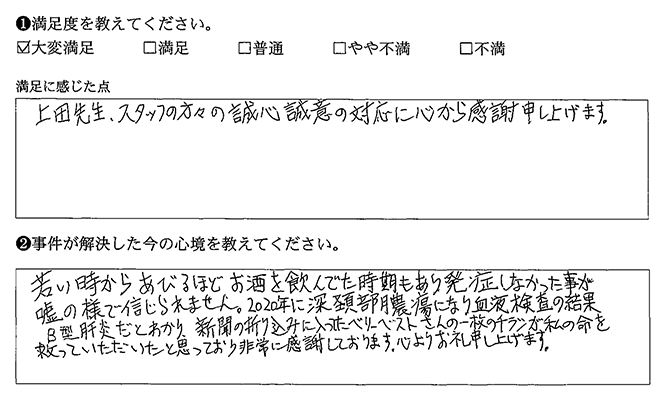 ❶満足度を教えてください。
☑大変満足 □満足 □普通 □やや不満 □不満
満足に感じた点
上田先生、スタッフの方々の誠心誠意の対応に心から感謝申し上げます。
❷事件が解決した今の心境を教えてください。
若い時からあびるほどお酒を飲んでた時期もあり発症しなかった事が
嘘の様で信じられません。2020年に深頚部膿瘍になり血液検査の結果
B型肝炎だとわかり新聞の折り込みに入ったベリーベストさんの一枚のチラシが私の命を
救っていただいたと思っており非常に感謝しております。心よりお礼申し上げます。